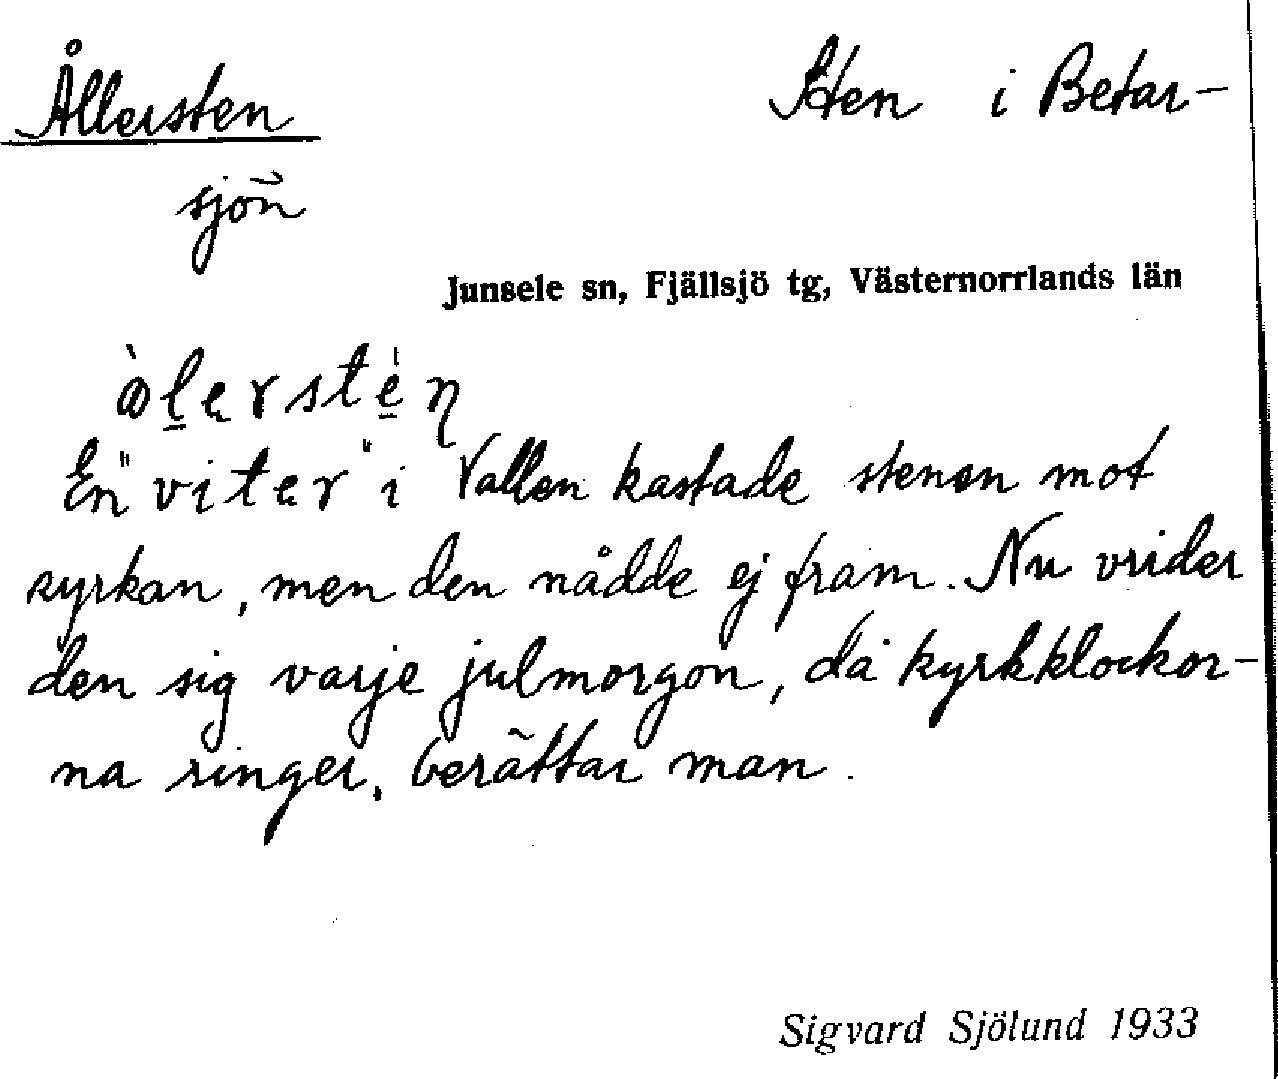 Ållersten Sten i Betar-
sjön
Junsele sn, Fjällsjö tg, Västernorrlands län
En "viter" i Vallen kastade stenen mot
kyrkan, men den nådde ej fram. Nu vrider
den sig varje julmorgon, då kyrkklockor-
na ringer, berättar man.
Sigvard Sjölund 1933